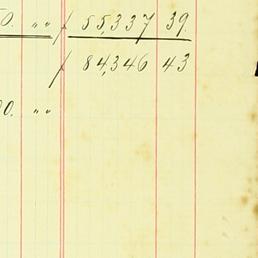 50. " " / 55,337 39.
/ 84,346 43
00. " "